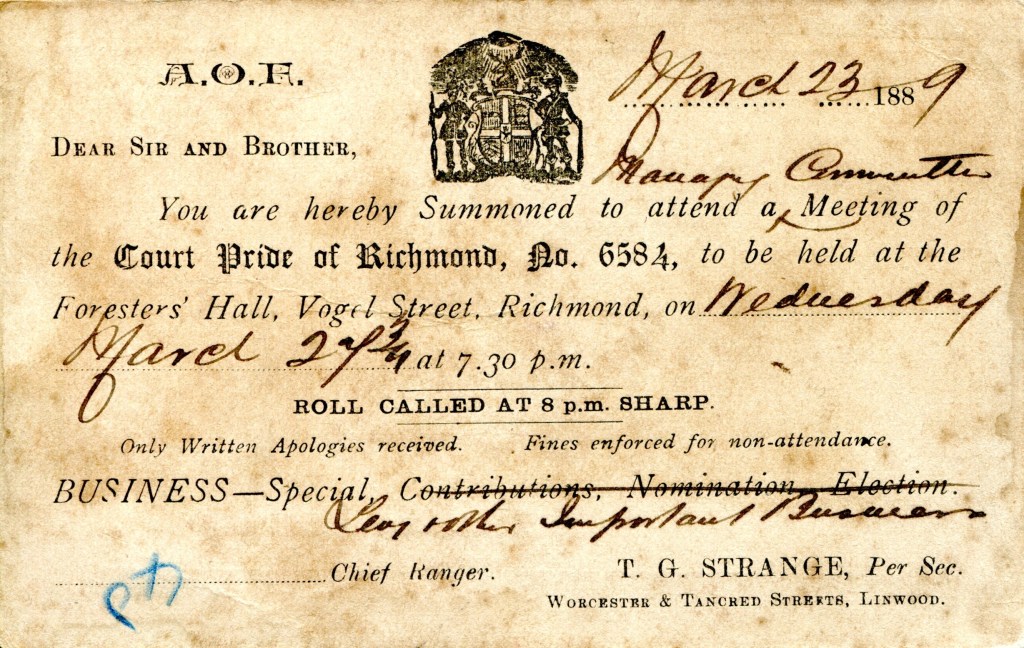 A.O.F.
March 23 1889
DEAR SIR AND BROTHER,
Managing Committee
You are hereby Summoned to attend a Meeting of
the Court Pride of Richmond, No. 6584, to be held at the
Foresters' Hall, Vogel Street, Richmond, on Wednesday
March 27 at 7.30 p.m.
ROLL CALLED AT 8 p.m. SHARP.
Only Written Apologies received. Fines enforced for non-attendance.
BUSINESS—Special, Contributions, Nomination, Election.
Important Business
Chief Ranger.
T. G. STRANGE, Per Sec.
WORCESTER & TANCRED STREETS, LINWOOD.